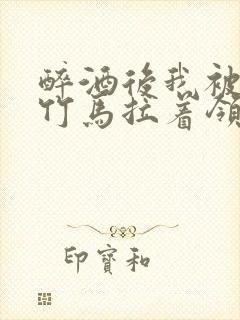 醉酒後我被
竹馬拉着領
印寶和